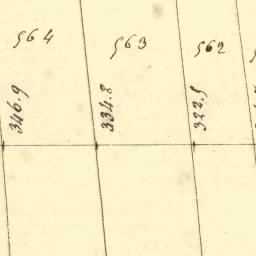 564
563
562
346.9
334.8
323.5